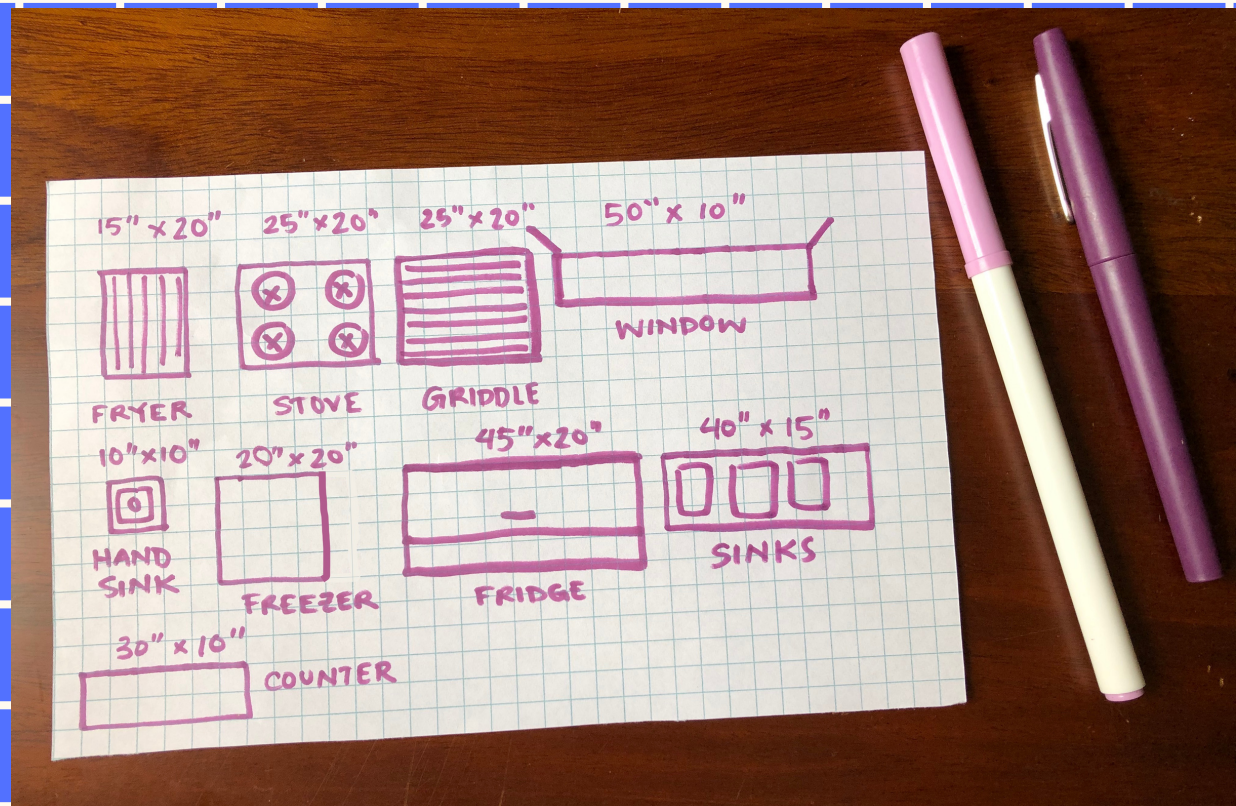 15" x 20"
25" x 20"
25" x 20"
50" x 10"
FRYER
STOVE
GRIDDLE
WINDOW
10" x 10"
20" x 20"
45" x 20"
40" x 15"
HAND
SINK
FREEZER
FRIDGE
SINKS
30" x 10"
COUNTER